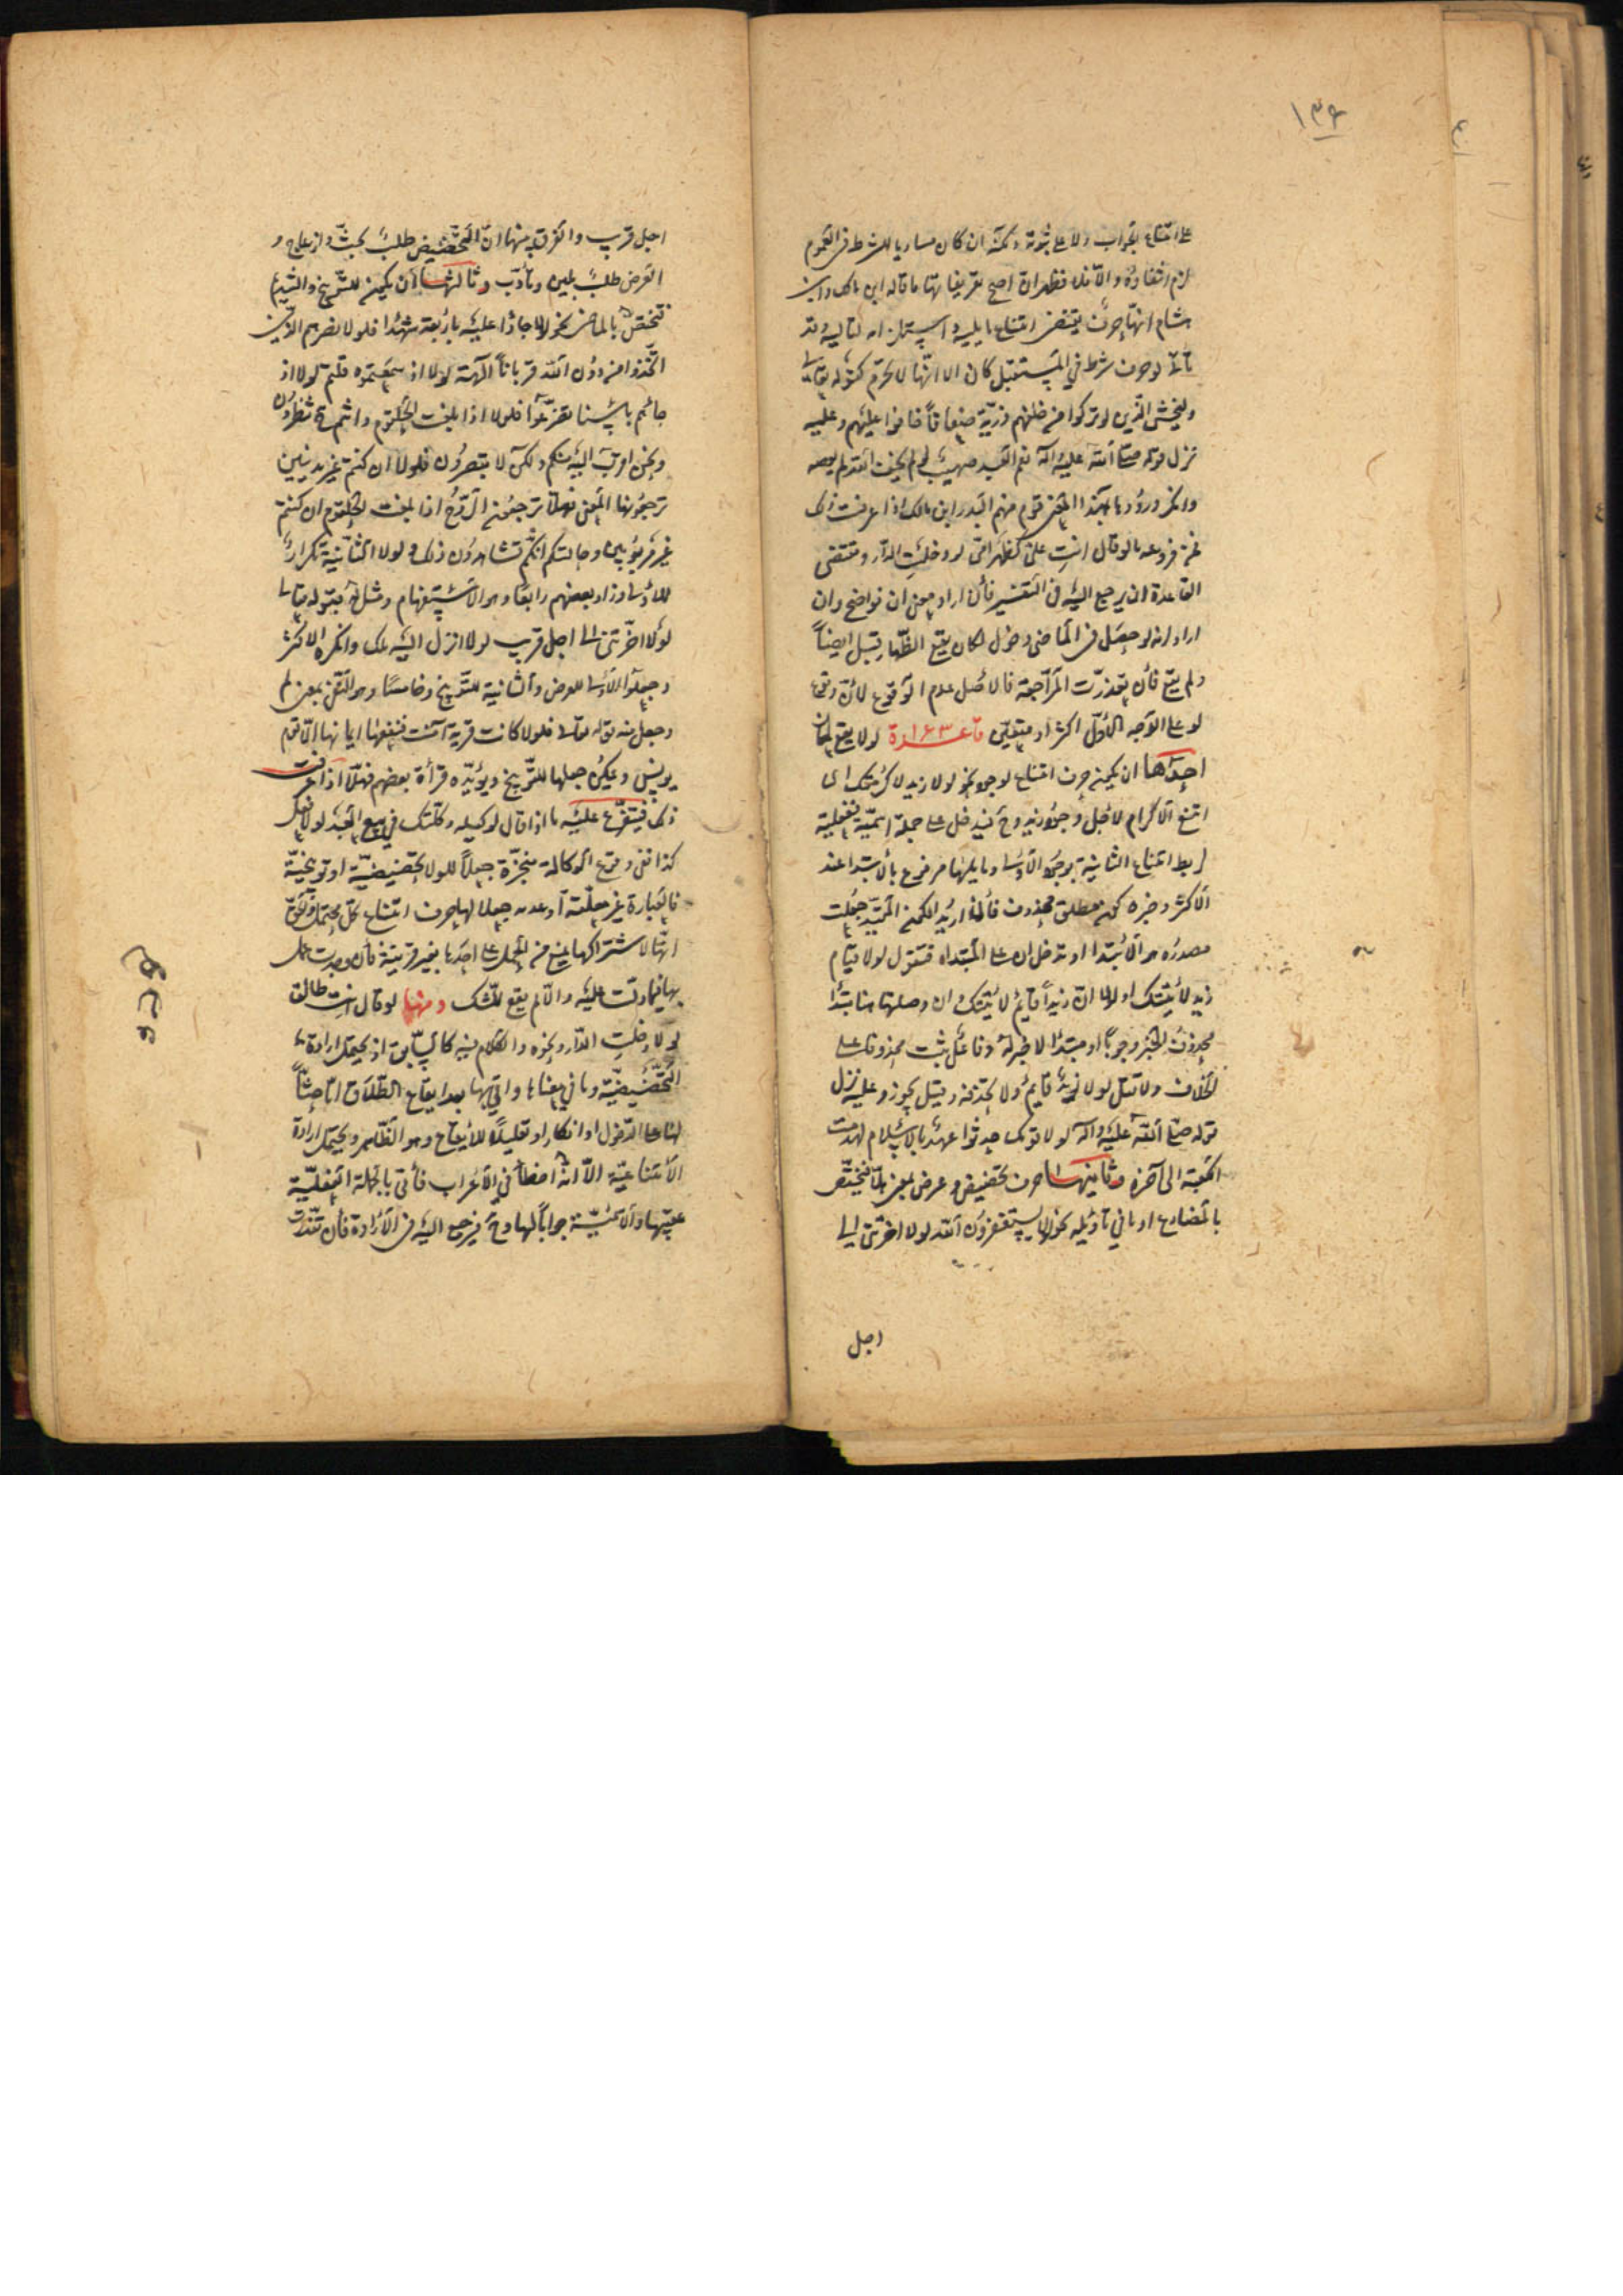 ١٣٩
على امتناع الجواب ولا على ثبوته ولكنه ان كان مساويا للشرط فى العموم
لزم انتفاؤه والا فلا فظهر ان اصح تعريفاتها ما قاله ابن مالك وابن
هشام انها حرف يقتضى امتناع ما يليه واستلزامه لتاليه وقد
يأتى لو حرف شرط في المستقبل كان الا انها لا تجزم كقوله تعالى
وليخش الذين لو تركوا من خلفهم ذرية ضعافا خافوا عليهم وعليه
نزل قوله صلى الله عليه وآله نعم العبد صهيب لو لم يخف الله لم يعصه
وانكر ورودها بهذا المعنى قوم منهم البدر ابن مالك اذا عرفت ذلك
فمن فروعه ما لو قال انت على كظهر امى لو دخلت الدار ومقتضى
القاعدة ان يرجع اليه فى التفسير فان اراد معنى ان فواضح وان
اراد انه لو حصل فى الماضى دخول لكان يقع الظهار قبل ايضاً
ولم يقع فان تعذرت المراجعة فالاصل عدم الوقوع لان وقوع
لو على الوجه الاول اكثر او متعين قاعدة ١٦٣ لولا يقع لمعان
احدها ان يكون حرف امتناع لوجود نحو لولا زيد لاكرمتك اى
امتنع الاكرام لاجل وجود زيد وح فيدخل على جملة اسمية ففعلية
لربط امتناع الثانية بوجود الاولى وما يليها مرفوع بالابتداء عند
الاكثر وخبره كون مطلق محذوف فاذا اريد الكون المقيد جعلت
مصدره هو الابتدا او تدخل ان على المبتداء فتقول لولا قيام
زيد لاتيتك او لولا ان زيداً قايم لاتيتك وان وصلتها مبتدأ
محذوف الخبر وجوباً او مبتدأ لا خبر له وفاعل بثبت محذوفا على
الخلاف ولا تقل لولا زيد قايم ولا تحذفه وقيل يجوز وعليه نزل
قوله صلى الله عليه وآله لولا قومك حديثوا عهد بالاسلام لهدمت
الكعبة الى آخره وثانيها حرف تحضيض وعرض بمعنى هلا فيختص
بالمضارع او ما في تأويله نحو لولا يستغفرون الله لولا اخرتنى الى
اجل
اجل قريب والفرق بينهما ان التحضيض طلب بحث وازعاج و
العرض طلب بلين وتأدب وثالثها ان يكون للتوبيخ والتنديم
فتختص بالماضى نحو لولا جاؤا عليه باربعة شهدا فلولا نصرهم الذين
اتخذوا من دون الله قرباناً آلهة لولا اذ سمعتموه قلتم لولا اذ
جائهم بأسنا تضرعوا فلولا اذا بلغت الحلقوم وانتم ح تنظرون
ونحن اقرب اليه منكم ولكن لا تبصرون فلولا ان كنتم غير مدينين
ترجعونها المعنى فهلا ترجعون الروح اذا بلغت الحلقوم ان كنتم
غير مربوبين وحالتكم انكم تشاهدون ذلك ولولا الثانية تكرار
للاولى وزاد بعضهم رابعا وهو الاستفهام ومثل له بقوله تعالى
لولا اخرتنى الى اجل قريب لولا انزل اليه ملك وانكره الاكثر
وجعلوا الاولى للعرض والثانية للتوبيخ وخامسا وهو النفى بمعنى لم
وجعل منه قوله تعالى فلولا كانت قرية آمنت فنفعها ايمانها الا قوم
يونس ويمكن جعلها للتوبيخ ويؤيده قرأة بعضهم فهلا اذا عرفت
ذلك فيتفرع عليه ما اذا قال لوكيله وكلتك في بيع العبد لولا تفعل
كذا ففى وقوع الوكالة منجزة جعلاً للولا تحضيضية او توبيخية
فالعبارة غير معلقة او عدمه جعلا لها حرف امتناع كل محتمل والاقوى
انها لاشتراكها يمنع من الحمل على احدها بغير قرينة فان وجدت عمل
بها فيما دلت عليه والا لم يقع للشك ومنها لو قال انت طالق
لولا دخلت الدار ونحوه والكلام فيه كالسابق اذ يحتمل ارادة
التحضيضية وما في معناها واتى بها بعد ايقاع الطلاق اما حثاً
لها على الدخول او انكار او تعليلا للايقاع وهو الظاهر ويحتمل ارادة
الامتناعية الا انه اخطأ في الاعراب فأتى بالجملة الفعلية
عقبها والاسمية جواباً لها وح فيرجع اليه فى الارادة فان تعذرت